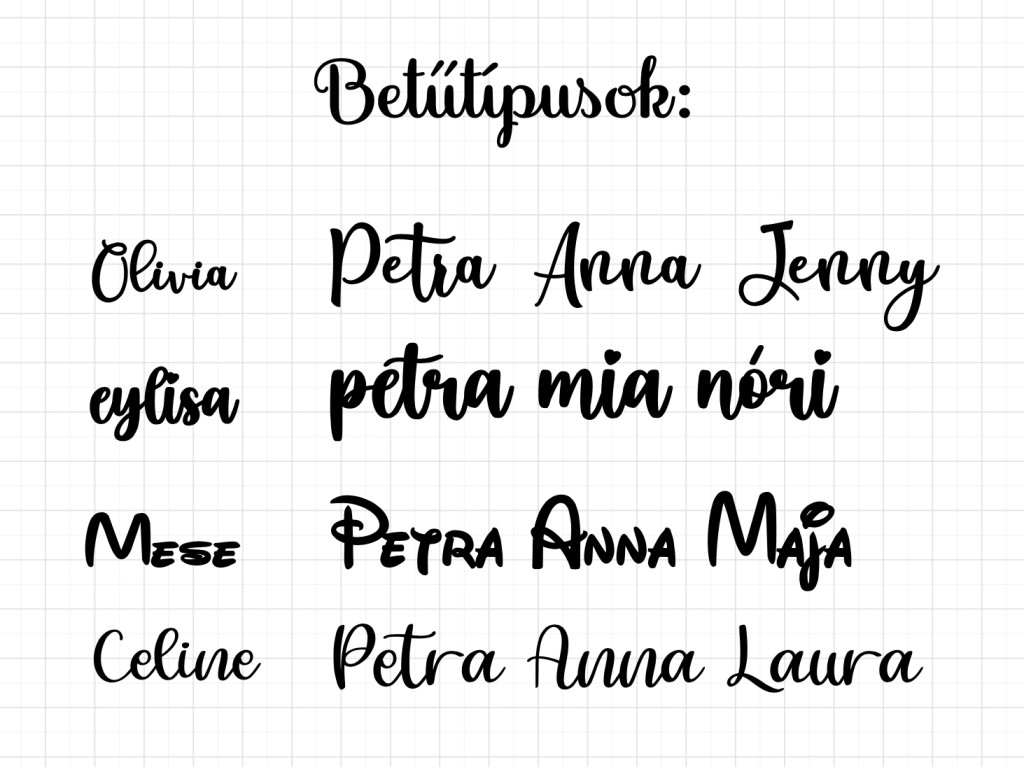 Betűtípusok:
Olivia Petra Anna Jenny
eylisa petra mia nóri
Mese Petra Anna Maja
Celine Petra Anna Laura